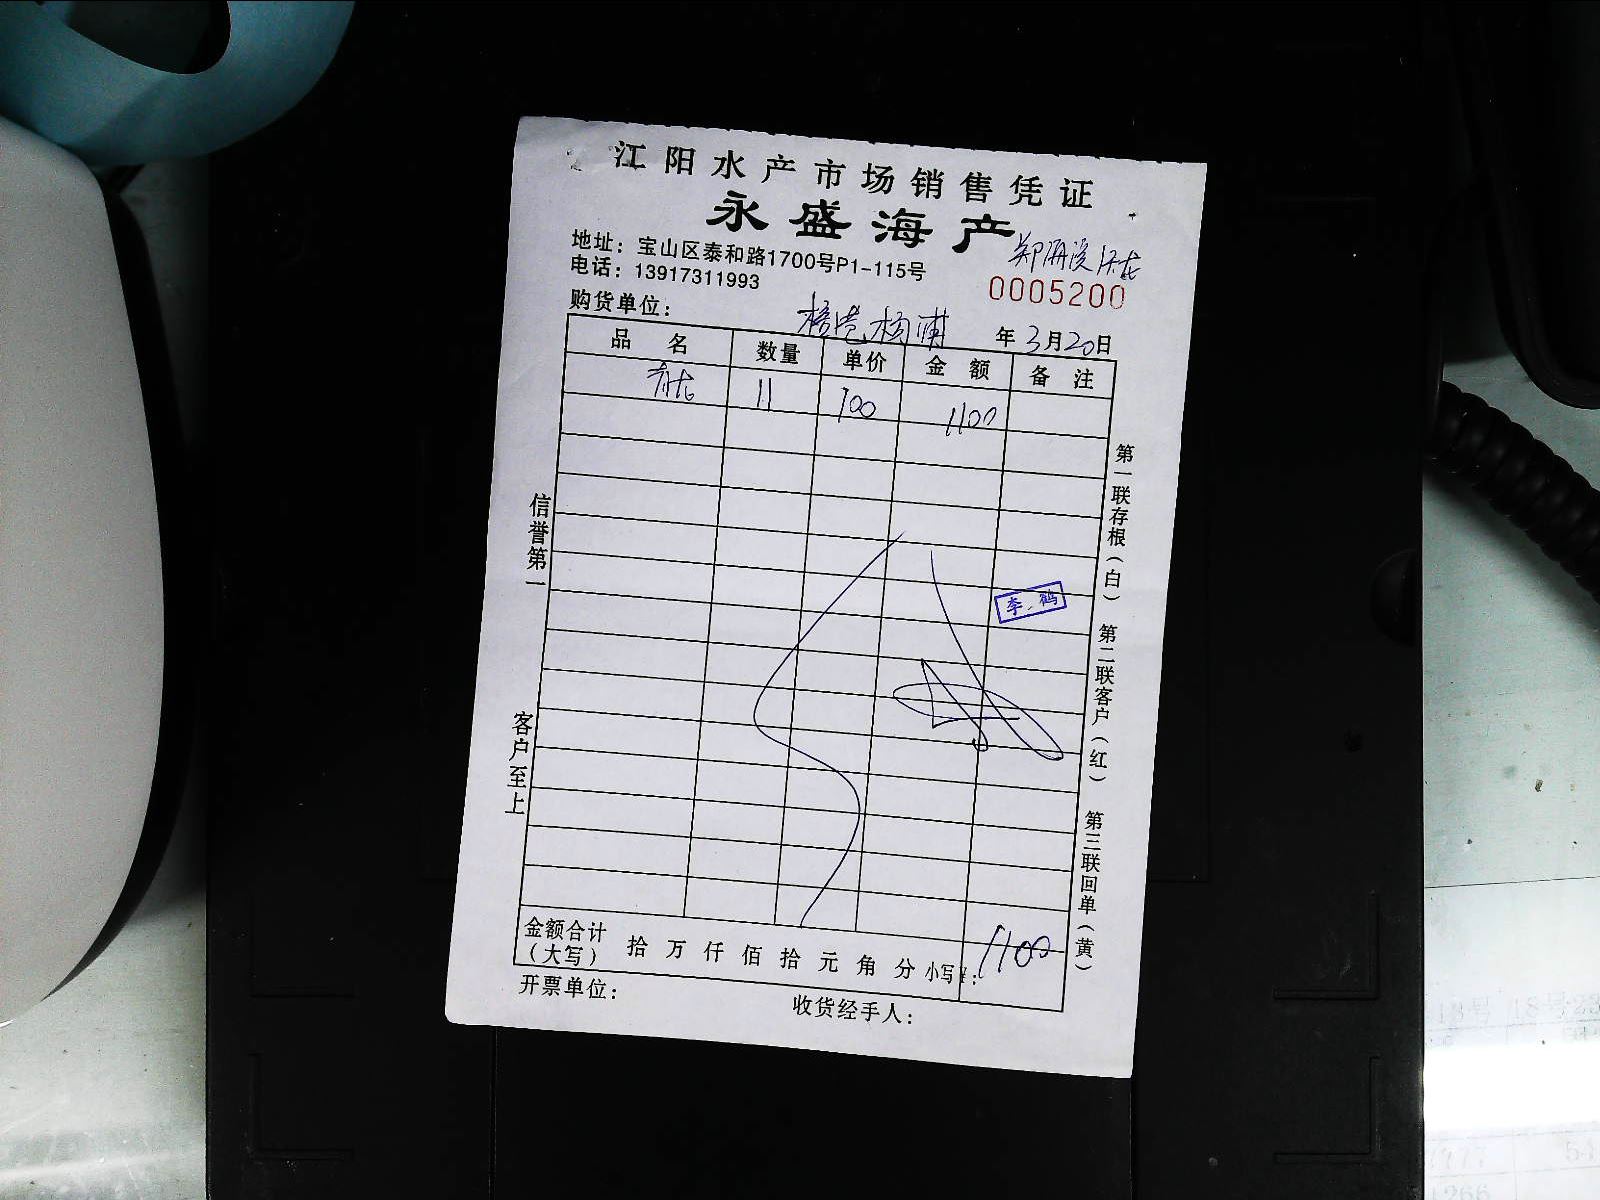 江阳水产市场销售凭证
永盛海产
地址：宝山区泰和路1700号P1-115号
电话：13917311993
0005200
购货单位：
年3月20日
品名 数量 单价 金额 备注
11 100 1100
信誉第一
客户至上
第一联存根（白）
第二联客户（红）
第三联回单（黄）
李鹤
金额合计（大写） 拾万仟佰拾元角分 小写¥：1100
开票单位： 收货经手人：